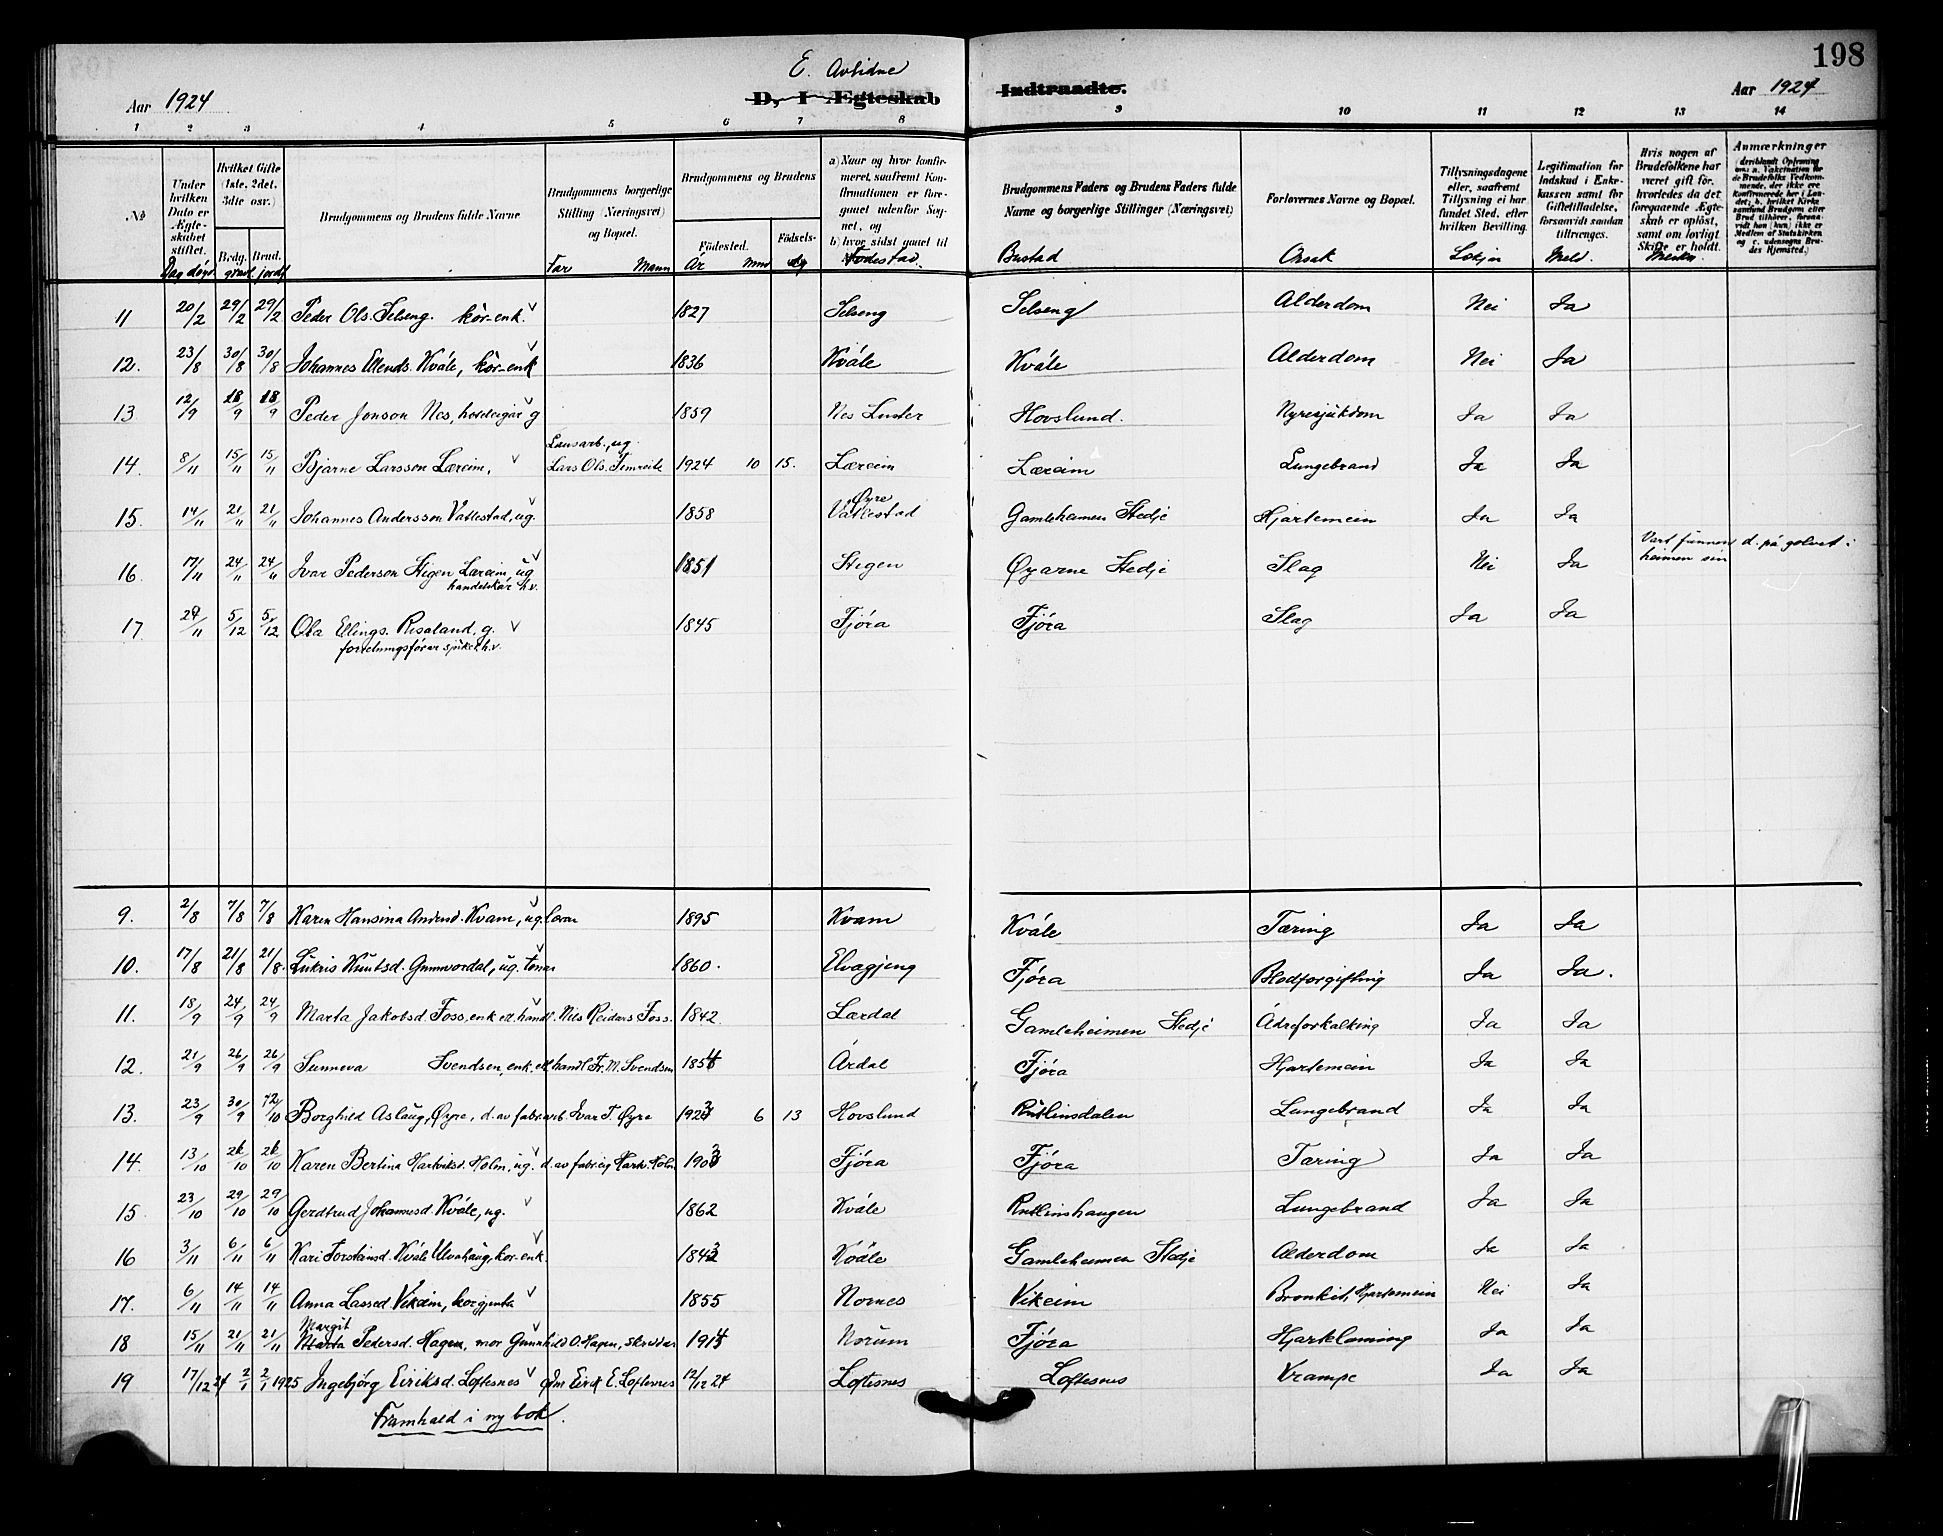 198
E. Avlidne
Aar 1924 D, I Ægteskab Indtraadte. Aar 1924
1 2 3 4 5 6 7 8 9 10 11 12 13 14
No
Under hvilken Dato er Ægteskabet stiftet.
Hvilket Gifte (1ste, 2det, 3die osv.)
Brdg. Brud.
Brudgommens og Brudens fulde Navne
Brudgommens borgerlige Stilling (Næringsvei) og Bopæl.
Brudgommens og Brudens
Fødested. Fødsels-
a) Naar og hvor konfirmeret, saafremt Konfirmationen er foregaaet udenfor Sognet, og
b) hvor sidst gaaet til
Brudgommens Faders og Brudens Faders fulde Navne og borgerlige Stillinger (Næringsvei)
Forlovernes Navne og Bopæl.
Tillysningsdagene eller, saafremt Tillysning ei har fundet Sted, efter hvilken Bevilling.
Legitimation for Indskud i Enkekassen samt for Giftetilladelse, forsaavidt saadan tiltrænges.
Hvis nogen af Brudefolkene har været gift før, hvorledes da det foregaaende Ægteskab er opløst, samt om lovligt Skifte er holdt.
Anmærkninger
Dag døyd gravl. jordf. Far Mann År Mnd dg Fødestad Bustad Orsak Lækjer Meld. Merkn.
11 20/2 29/2 29/2 Peder Ols. Selseng. kår-enk. v 1827 Selseng Selseng Alderdom Nei Ja
12. 23/8 30/8 30/8 Johannes Ellends. Kvåle, kår-enk v 1836 Kvåle Kvåle Alderdom Nei Ja
13 12/9 18/9 18/9 Peder Jonson Nes, hotteleigar g v 1859 Nes Luster Hovslund. Nyresjukdom Ja Ja
14. 8/11 15/11 15/11 Bjarne Larsson Læreim, v Lausarb., ug. Lars Ols. Timreite 1924 10 15. Læreim Læreim Lungebrand Ja Ja
15. 14/11 21/11 21/11 Johannes Andersson Vallestad, ug. v 1858 Øyre Vallestad Gamleheimen Stedje Hjartemein Ja Ja
16. 17/11 24/11 24/11 Ivar Pederson Stigen Læreim, ug v 1851 Stegen Øyarne Stedje Slag Nei Ja Vart funnen d. på golvet i heimen sin
handelskar h.v.
17. 29/11 5/12 5/12 Ola Ellings. Risaland, g. v 1845 Fjøra Fjøra Slag Ja Ja
forretningsførar sjukek. h.v.
9. 2/8 7/8 7/8 Karen Hansina Andersd. Kvam, ug. 1895 Kvam Kvåle Tæring Ja Ja
10. 17/8 21/8 21/8. Lukris Knutsd. Gunnvordal, ug. v 1860. Elvagjeng Fjøra Blodforgifting Ja Ja.
11. 18/9 24/9 24/9 Marta Jakobsd. Foss, enk. ett. handl. Nils Reidars Foss. v 1842. Lærdal Gamleheimen Stedje Adreforkalking Ja Ja
12. 21/9 26/9 26/9 Sunneva Svendsen, enk. ett handl Fr. M. Svendsen Årdal Fjøra Hjartemein Ja Ja
13. 23/9 30/9 Borghild Aslaug, Øyre, d. av fabr. arb. Ivar T. Øyre 1923 6 13 Hovslund Rutlinsdalen Lungebrand Ja Ja
14. 13/10 Karen Bertina Hartviksd. Holm, ug. v d. av fabr. eig Hark. Holm 1903 Fjøra Fjøra Tæring Ja Ja
15. 23/10 29/10 29/10 Gerdtrud Johannesd. Kvåle, ug. v 1862 Kvåle Rutlinshaugen Lungebrand Ja Ja
16 3/11 6/11 6/11 Kari Torstainsd. Kvåle Ulvahaug, kår-enk. v 1843 Kvåle Gamleheimen Stedje Alderdom Ja Ja
17. 6/11 14/11 14/11 Anna Lassed. Vikeim, korgjenta v 1855 Nornes Vikeim Bronkit, Hjartemein Nei Ja
18 15/11 21/11 21/11 Margit Marta Pedersd. Hagen, mor Gunnhild O. Hagen, skreddar v 1914 Norum Fjøra Hjarklaming Ja Ja
19 17/12 24 2/1 2/1 1925 Ingebjørg Eiriksd. Loftesnes v Eirik E. Loftesnes 12/12 24 Loftesnes Loftesnes Krampe Ja Ja
Framhald i ny bok.